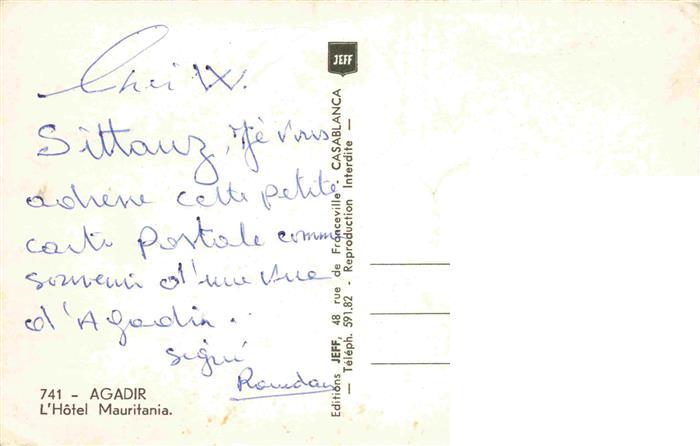 Cher W.
Sittauz, Je vous
adresse cette petite
carte postale comme
souvenir d'une vue
d'Agadir.
signé
Ramdan
741 - AGADIR
L'Hôtel Mauritania.
JEFF
Editions JEFF, 48 rue de Franceville CASABLANCA
— Téléph. 591.82 - Reproduction Interdite —